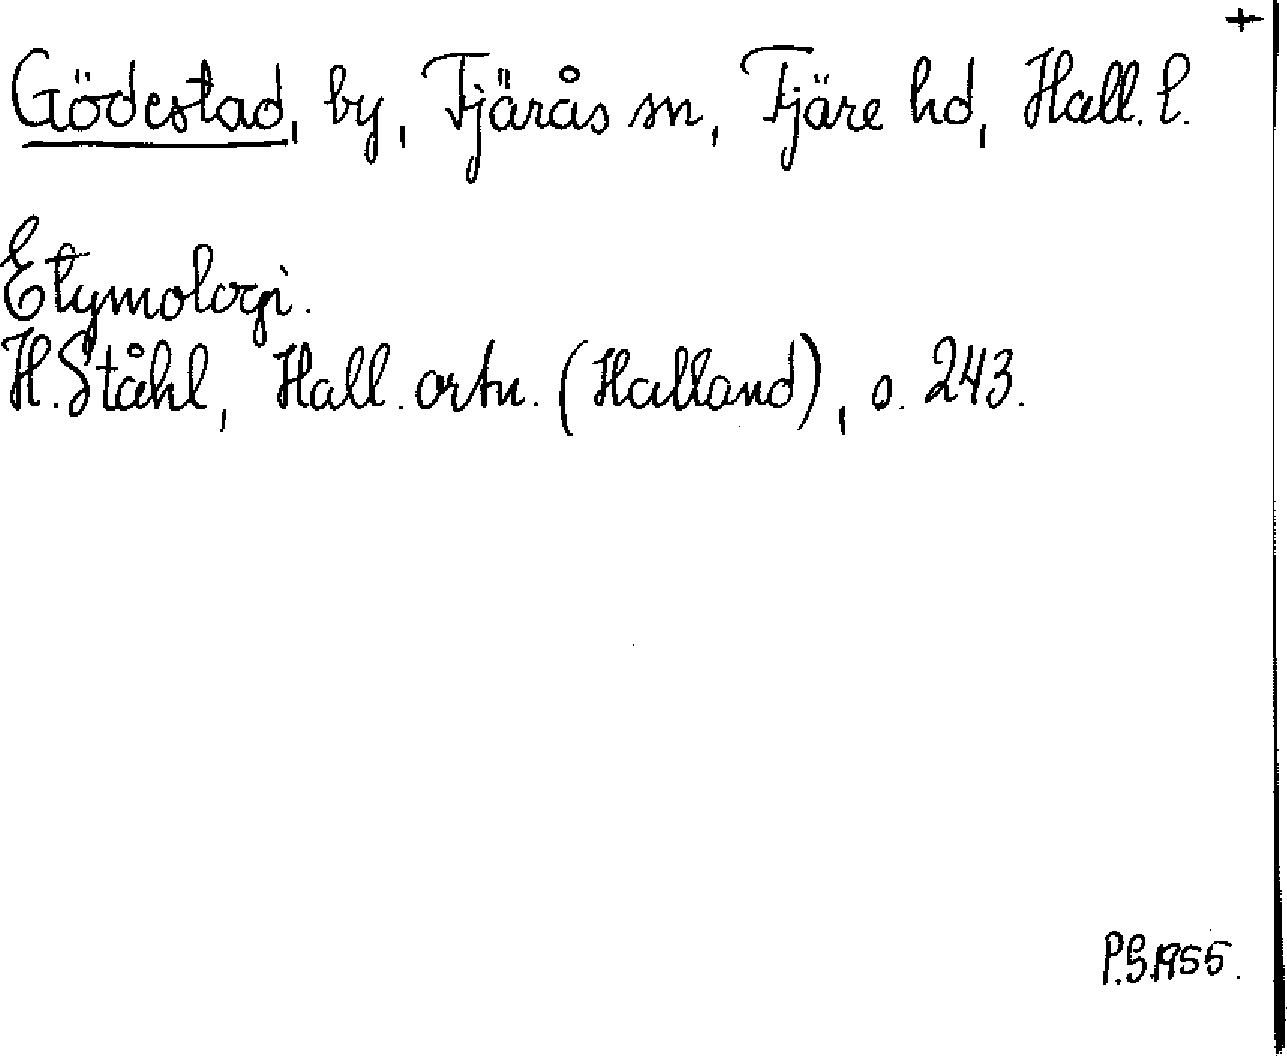 +
Gödestad, by, Fjärås sn, Fjäre hd, Hall. l.
Etymologi.
H. Ståhl, Hall. ortn. (Halland), s. 243.
P.G. 1955.